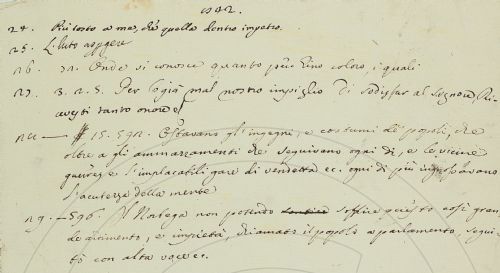 1542.
24. Più tosto a me, che quella dentro impetro.
25. L'huto asprera
26. 32. Onde si conosce quanto più sino coloro, i quali
27. 3. 2. 5. Per logià mal nostro impiglio di sodisfar al Signore, Ri
cevesti tanto onore/
15. 592. Estavano gl'ingegni, e costumi di popoli, che
oltre a gli ammazzamenti che seguivano ogni dì, e le vicine
guerre, e l'implacabili gare di vendetta ec. ogni dì più
l'acutezza della mente
29. 596 Il Noriega non potendo soffrire questo così gran
de ardimento, e impietà, chiamato il popolo a parlamento, segui
tò con alta voce ec.